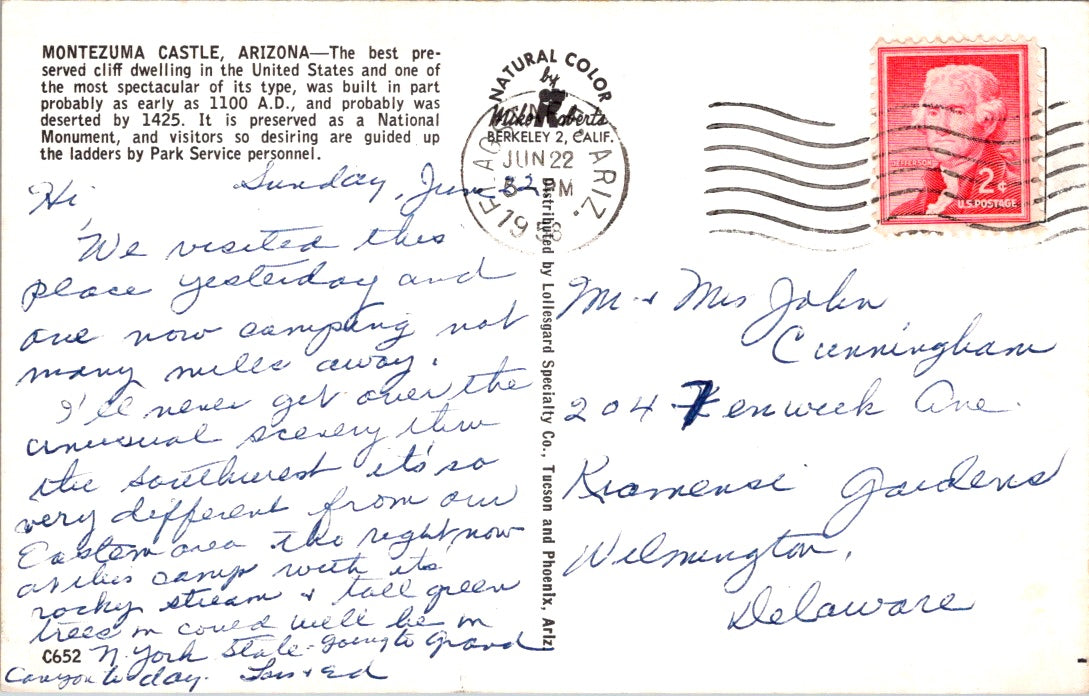 MONTEZUMA CASTLE, ARIZONA—The best pre-
served cliff dwelling in the United States and one of
the most spectacular of its type, was built in part
probably as early as 1100 A.D., and probably was
deserted by 1425. It is preserved as a National
Monument, and visitors so desiring are guided up
the ladders by Park Service personnel.
NATURAL COLOR
by
Mike Roberts
BERKELEY 2, CALIF.
FLAG ARIZ.
JUN 22
PM
1958
JEFFERSON
2¢
U.S. POSTAGE
Sunday, June 22
Hi
We visited this
place yesterday and
are now camping not
many miles away.
I'll never get over the
unusual scenery thru
the southwest it's so
very different from our
Eastern area tho right now
at this camp with its
rocky stream & tall green
trees could well be in
N. York State - going to Grand
Canyon to day. Lois & Ed
C652
Distributed by Lollesgard Specialty Co., Tucson and Phoenix, Ariz.
Mr & Mrs John
Cunningham
204 Fenwick Ave.
Kiamensi Gardens
Wilmington,
Delaware